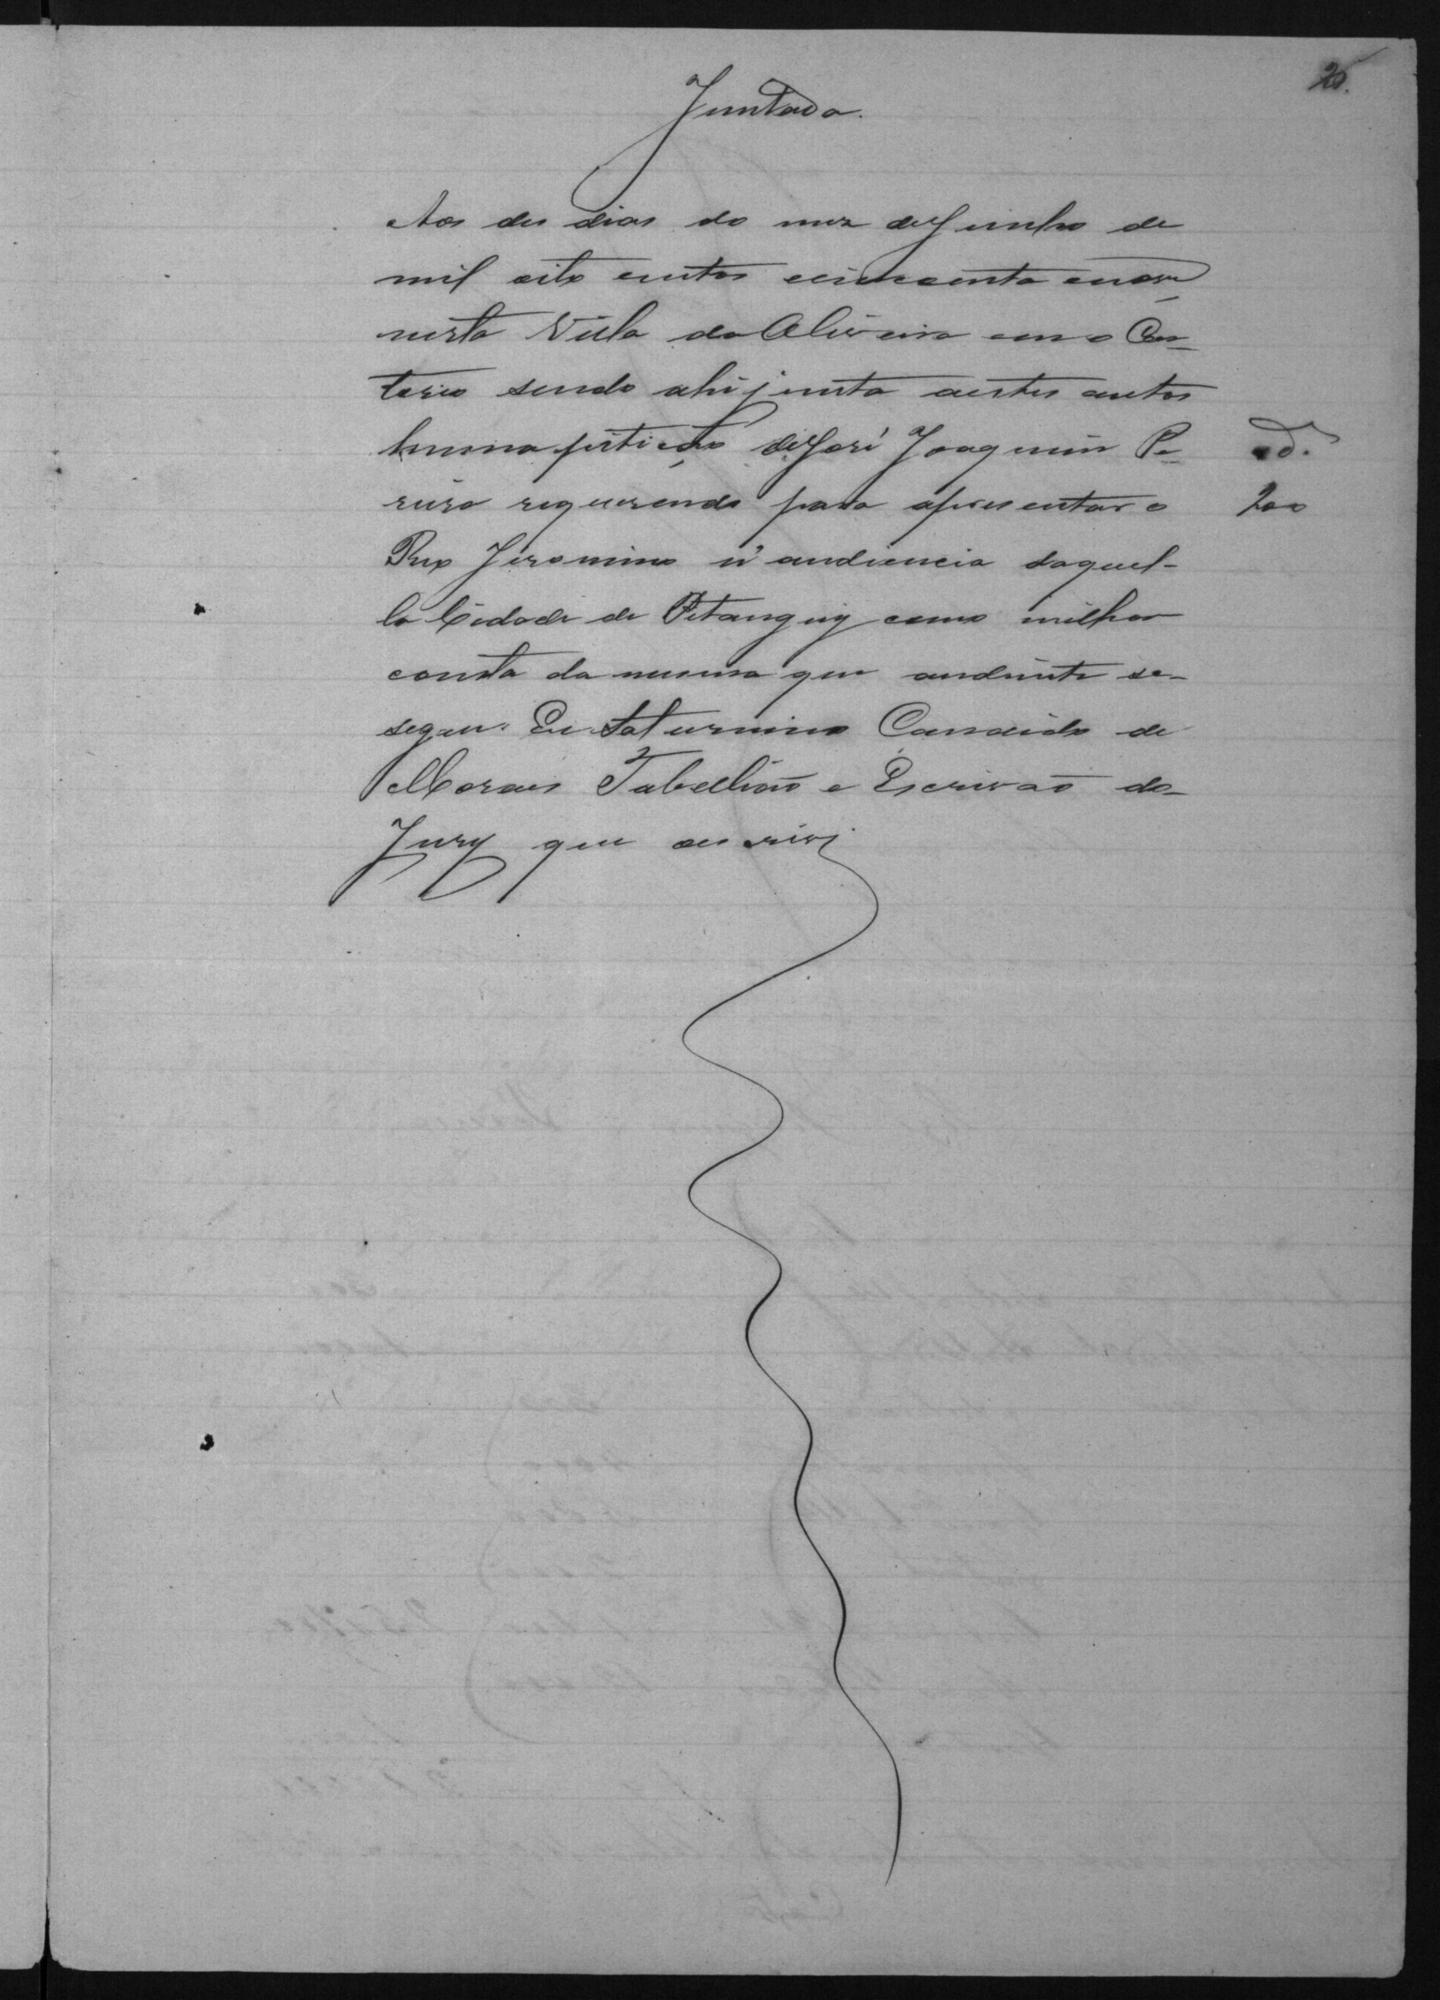 25.
Juntada.
Aos des dias do mez de Junho de
mil oito centos cincoenta e nove
nesta Villa da Oliveira em o Car-
torio sendo ahi junta aestes autos
huma petição de José Joaquim Pe-
reira requerendo para apresentar o
Reo Jeronimo n'audiencia daquel-
la Cidade de Pitanguy como milhor
consta da mesma que andiente se-
segue. Eu Saturnino Candido de
Moraes Tabellião e Escrivão do-
Jury que escrivi
ad.
200